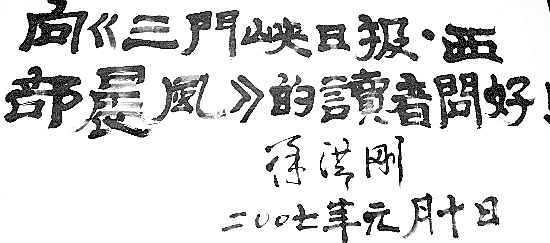 向《三門峽日报·西
部晨風》的讀者問好！
徐洪刚
二〇〇七年元月十日